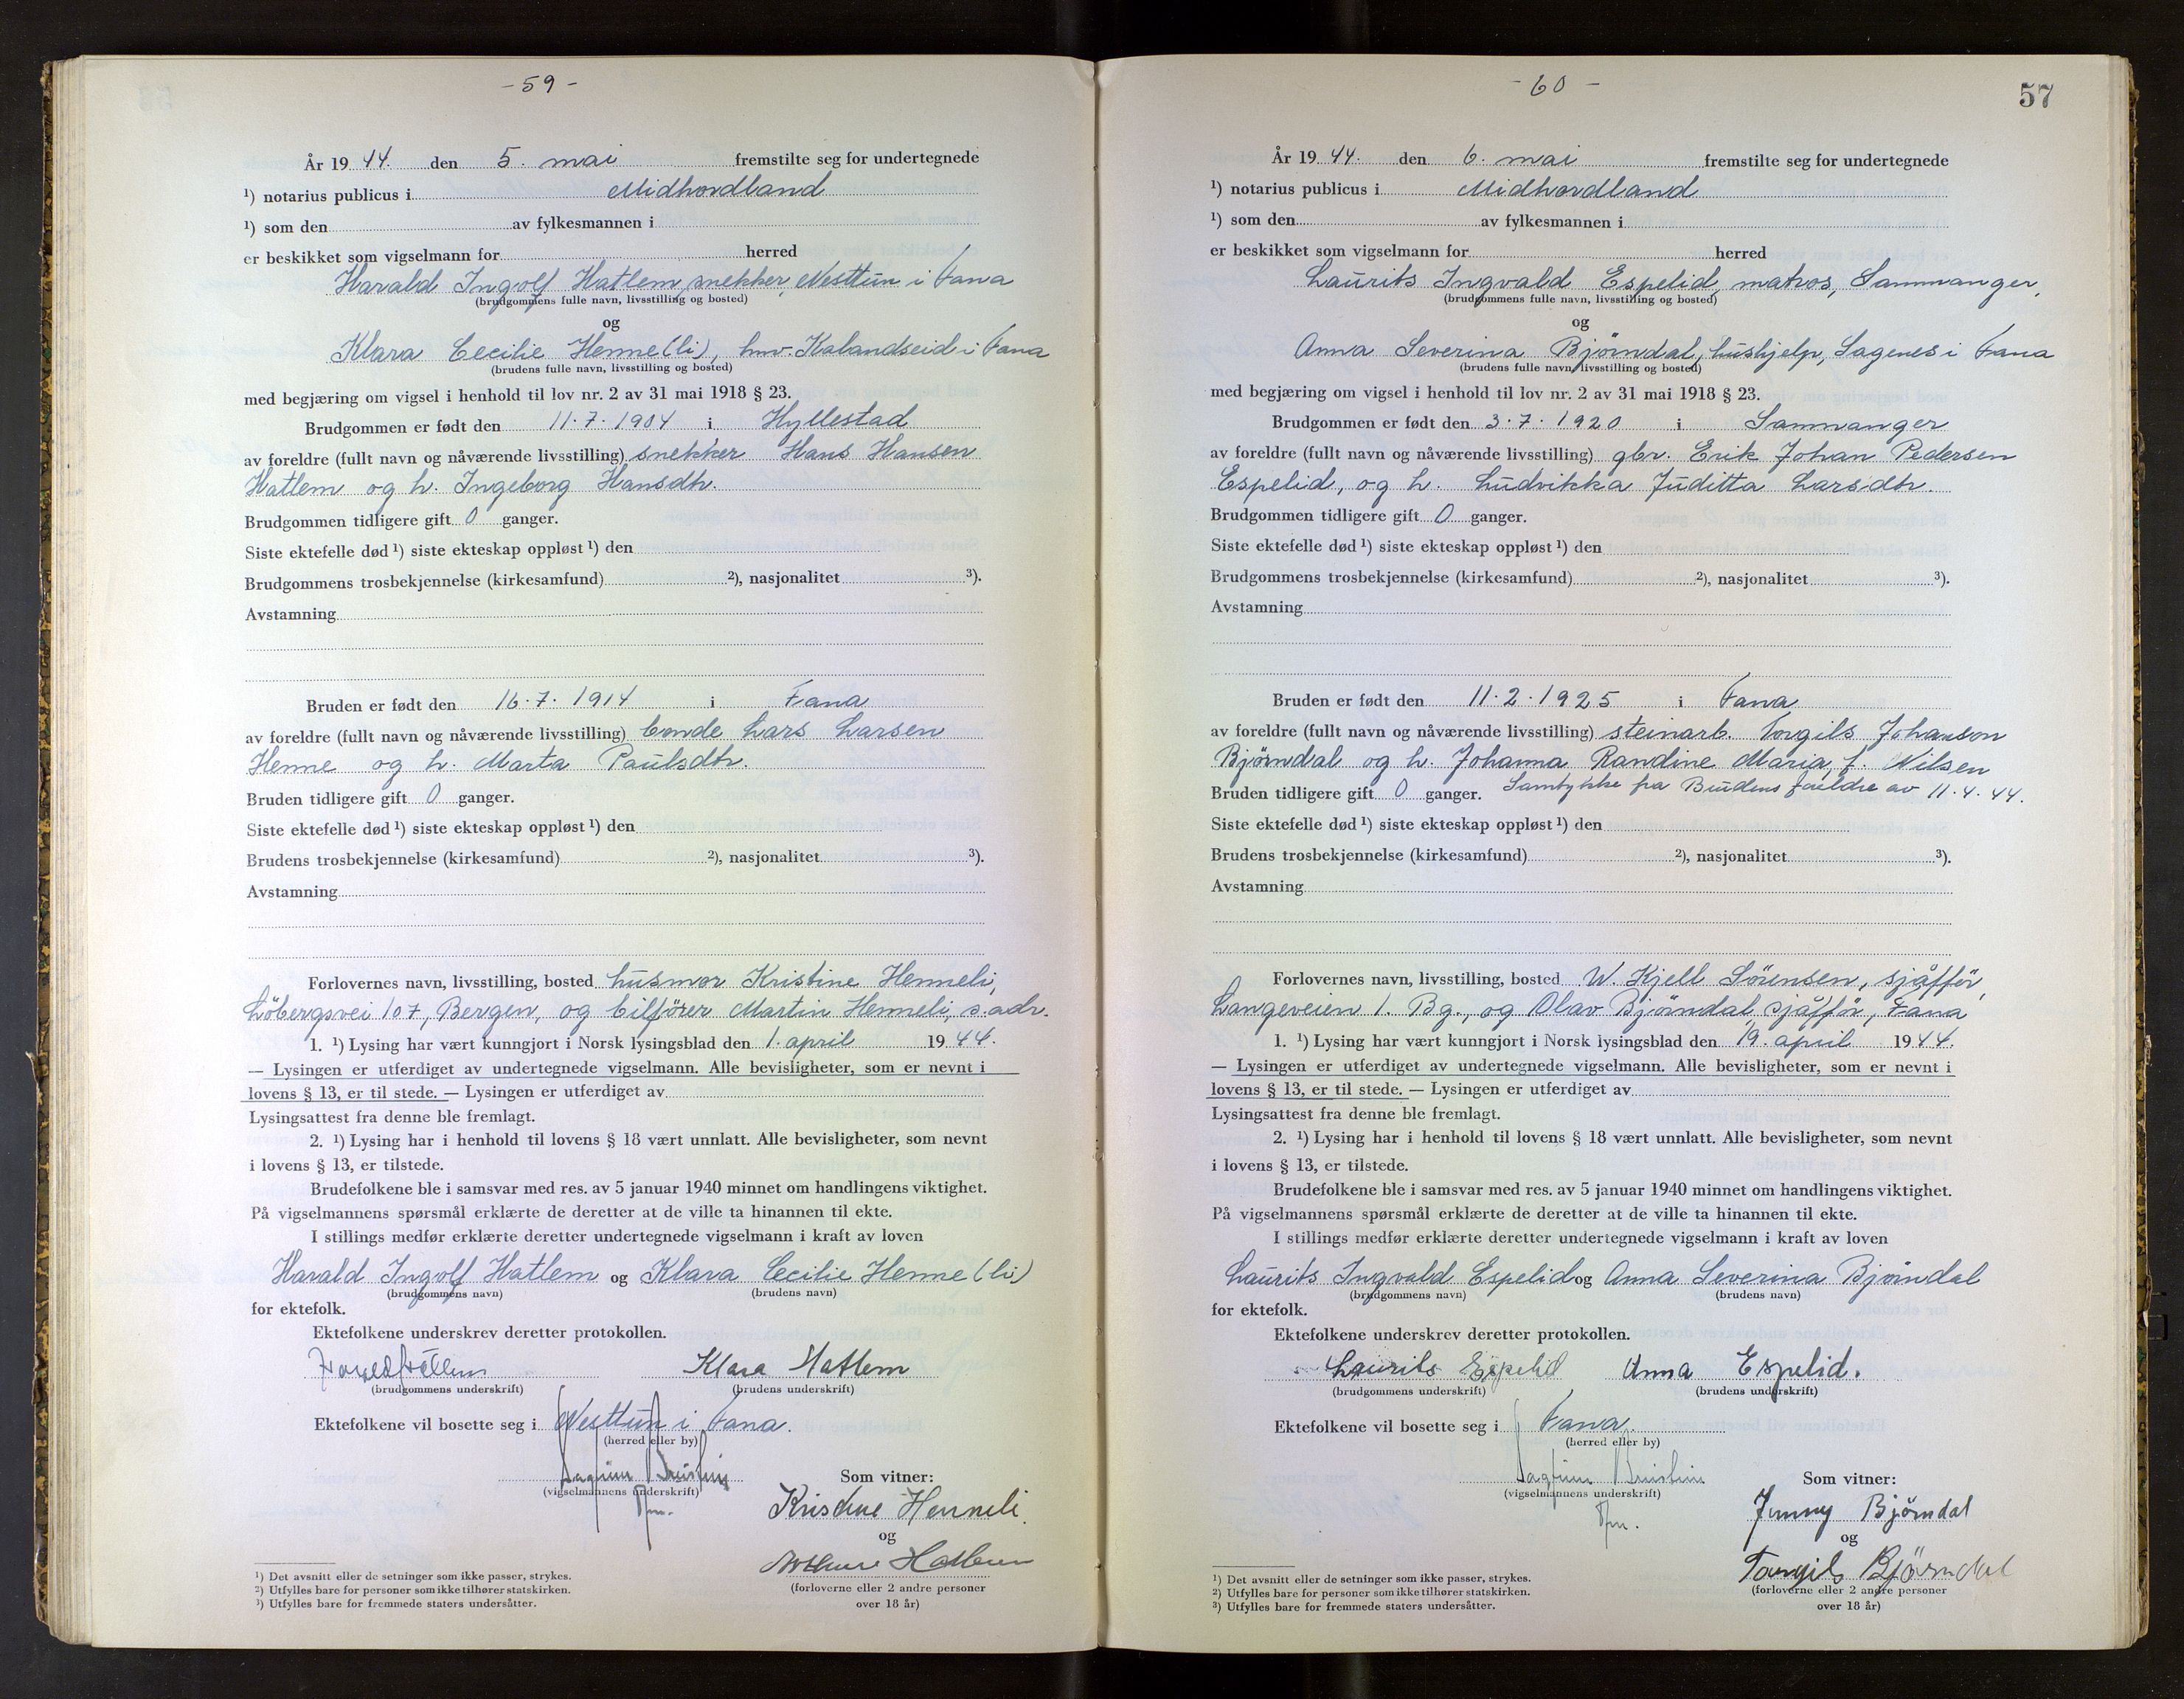 - 59 -
År 19 44. den 5. mai fremstilte seg for undertegnede
¹) notarius publicus i Midhordland
¹) som den av fylkesmannen i
er beskikket som vigselmann for herred
Harald Ingolf Hatlem, snekker, Nesttun i Fana
(brudgommens fulle navn, livsstilling og bosted)
og
Klara Cecilie Henne(li), hmv. Kalandseid i Fana
(brudens fulle navn, livsstilling og bosted)
med begjæring om vigsel i henhold til lov nr. 2 av 31 mai 1918 § 23.
Brudgommen er født den 11.7.1904 i Hyllestad
av foreldre (fullt navn og nåværende livsstilling) snekker Hans Hansen
Hatlem og h. Ingeborg Hansdtr.
Brudgommen tidligere gift 0 ganger.
Siste ektefelle død ¹) siste ekteskap oppløst ¹) den
Brudgommens trosbekjennelse (kirkesamfund) ²), nasjonalitet ³).
Avstamning
Bruden er født den 16.7.1914 i Fana
av foreldre (fullt navn og nåværende livsstilling) bonde Lars Larsen
Henne og h. Marta Paulsdtr.
Bruden tidligere gift 0 ganger.
Siste ektefelle død ¹) siste ekteskap oppløst ¹) den
Brudens trosbekjennelse (kirkesamfund) ²), nasjonalitet ³).
Avstamning
Forlovernes navn, livsstilling, bosted husmor Kristine Henneli,
Løbergsvei 107, Bergen, og bilfører Martin Henneli, s. adr.
1. ¹) Lysing har vært kunngjort i Norsk lysingsblad den 1. april 19 44.
— Lysingen er utferdiget av undertegnede vigselmann. Alle bevisligheter, som er nevnt i
lovens § 13, er til stede. — Lysingen er utferdiget av
Lysingsattest fra denne ble fremlagt.
2. ¹) Lysing har i henhold til lovens § 18 vært unnlatt. Alle bevisligheter, som nevnt
i lovens § 13, er tilstede.
Brudefolkene ble i samsvar med res. av 5 januar 1940 minnet om handlingens viktighet.
På vigselmannens spørsmål erklærte de deretter at de ville ta hinannen til ekte.
I stillings medfør erklærte deretter undertegnede vigselmann i kraft av loven
Harald Ingolf Hatlem og Klara Cecilie Henne(li)
(brudgommens navn) (brudens navn)
for ektefolk.
Ektefolkene underskrev deretter protokollen.
Klara Hatlem
(brudgommens underskrift) (brudens underskrift)
Ektefolkene vil bosette seg i Nesttun i Fana.
(herred eller by)
Som vitner:
(vigselmannens underskrift)
Kristine Henneli.
og
Hatlem
(forloverne eller 2 andre personer
over 18 år)
¹) Det avsnitt eller de setninger som ikke passer, strykes.
²) Utfylles bare for personer som ikke tilhører statskirken.
³) Utfylles bare for fremmede staters undersåtter.
- 60 -
57
År 19 44. den 6. mai fremstilte seg for undertegnede
¹) notarius publicus i Midhordland
¹) som den av fylkesmannen i
er beskikket som vigselmann for herred
Laurits Ingvald Espelid, matros, Samnanger,
(brudgommens fulle navn, livsstilling og bosted)
og
Anna Severina Bjørndal, hushjelp, Sagenes i Fana
(brudens fulle navn, livsstilling og bosted)
med begjæring om vigsel i henhold til lov nr. 2 av 31 mai 1918 § 23.
Brudgommen er født den 3.7.1920 i Samnanger
av foreldre (fullt navn og nåværende livsstilling) gbr. Erik Johan Pedersen
Espelid, og h. Ludvikka Juditta Larsdtr.
Brudgommen tidligere gift 0 ganger.
Siste ektefelle død ¹) siste ekteskap oppløst ¹) den
Brudgommens trosbekjennelse (kirkesamfund) ²), nasjonalitet ³).
Avstamning
Bruden er født den 11.2.1925 i Fana
av foreldre (fullt navn og nåværende livsstilling) steinarb. Torgils Johanson
Bjørndal og h. Johanna Randine Maria, f. Nilsen
Bruden tidligere gift 0 ganger. Samtykke fra Brudens foreldre av 11.4.44.
Siste ektefelle død ¹) siste ekteskap oppløst ¹) den
Brudens trosbekjennelse (kirkesamfund) ²), nasjonalitet ³).
Avstamning
Forlovernes navn, livsstilling, bosted W. Kjell Sørensen, sjåffør,
Langeveien 1. Bg., og Olav Bjørndal, sjåffør, Fana
1. ¹) Lysing har vært kunngjort i Norsk lysingsblad den 19. april 19 44.
— Lysingen er utferdiget av undertegnede vigselmann. Alle bevisligheter, som er nevnt i
lovens § 13, er til stede. — Lysingen er utferdiget av
Lysingsattest fra denne ble fremlagt.
2. ¹) Lysing har i henhold til lovens § 18 vært unnlatt. Alle bevisligheter, som nevnt
i lovens § 13, er tilstede.
Brudefolkene ble i samsvar med res. av 5 januar 1940 minnet om handlingens viktighet.
På vigselmannens spørsmål erklærte de deretter at de ville ta hinannen til ekte.
I stillings medfør erklærte deretter undertegnede vigselmann i kraft av loven
Laurits Ingvald Espelid og Anna Severina Bjørndal
(brudgommens navn) (brudens navn)
for ektefolk.
Ektefolkene underskrev deretter protokollen.
Laurits Espelid Anna Espelid.
(brudgommens underskrift) (brudens underskrift)
Ektefolkene vil bosette seg i Fana.
(herred eller by)
Som vitner:
(vigselmannens underskrift)
Jenny Bjørndal
og
Torgils Bjørndal
(forloverne eller 2 andre personer
over 18 år)
¹) Det avsnitt eller de setninger som ikke passer, strykes.
²) Utfylles bare for personer som ikke tilhører statskirken.
³) Utfylles bare for fremmede staters undersåtter.